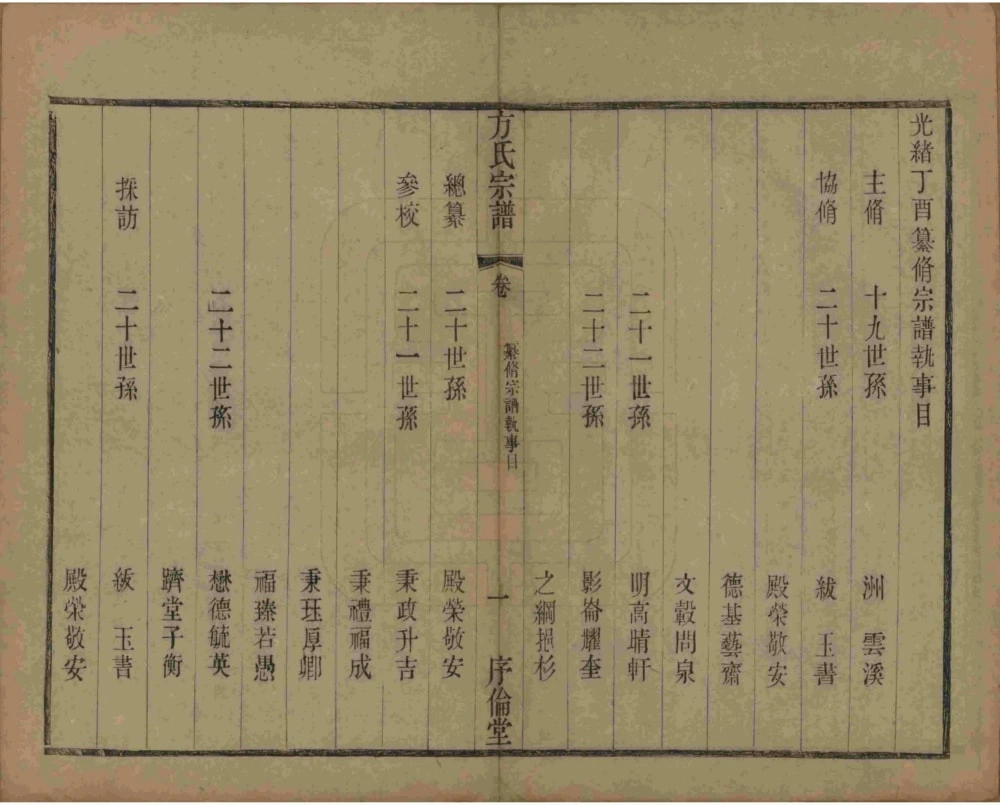 光緒丁酉纂脩宗譜執事目
主脩 十九世孫 洲 雲溪
協脩 二十世孫 紱 玉書
殿榮敬安
德基藝齋
文毅問泉
二十一世孫 明高晴軒
二十二世孫 影崙耀奎
之綱挹杉
方氏宗譜 卷 纂脩宗譜執事目 一 序倫堂
總纂 二十世孫 殿榮敬安
參校 二十一世孫 秉政升吉
秉禮福成
秉珏厚卿
福臻若愚
二十二世孫 懋德毓英
躋堂子衡
採訪 二十世孫 紱 玉書
殿榮敬安